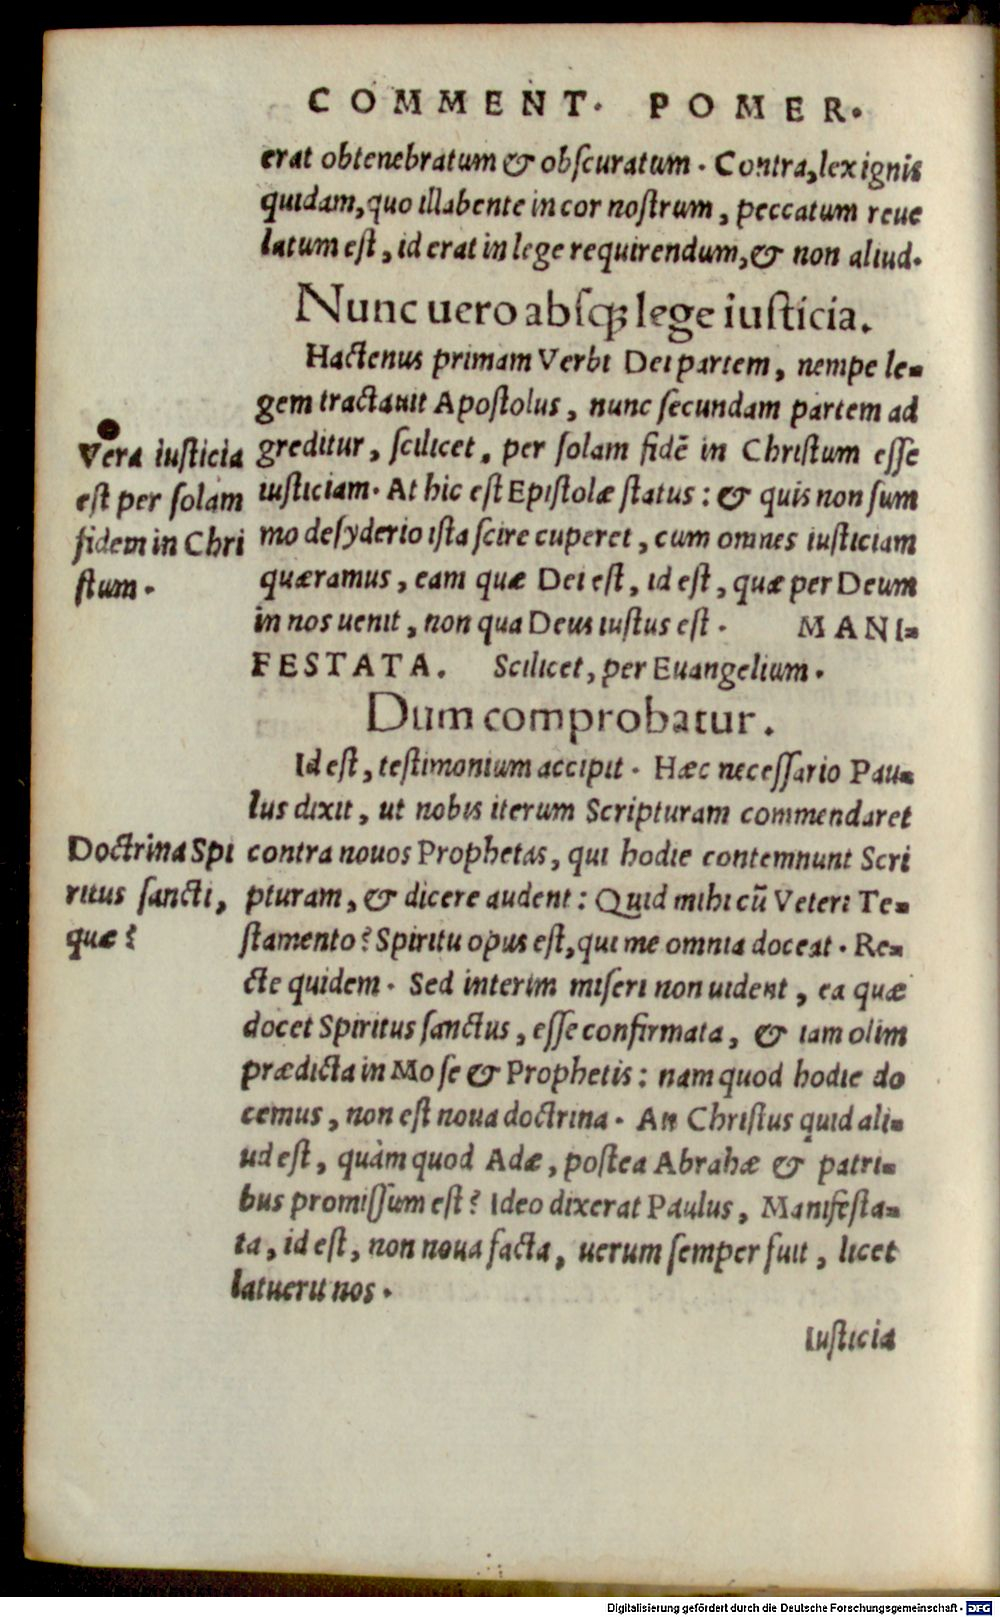 COMMENT. POMER.
erat obtenebratum & obſcuratum. Contra, lex ignis
quidam, quo illabente in cor noſtrum, peccatum reue
latum eſt, id erat in lege requirendum, & non aliud.
Nunc uero abſqꝫ lege iuſticia.
Hactenus primam Verbi Dei partem, nempe le-
gem tractauit Apoſtolus, nunc ſecundam partem ad
greditur, ſcilicet, per ſolam fidē in Chriſtum eſſe
iuſticiam. At hic eſt Epiſtolæ ſtatus: & quis non ſum
mo deſyderio iſta ſcire cuperet, cum omnes iuſticiam
quæramus, eam quæ Dei eſt, id eſt, quæ per Deum
in nos uenit, non qua Deus iuſtus eſt. MANI-
FESTATA. Scilicet, per Euangelium.
Vera iuſticia
eſt per ſolam
fidem in Chri
ſtum.
Dum comprobatur.
Id eſt, teſtimonium accipit. Hæc neceſſario Pau-
lus dixit, ut nobis iterum Scripturam commendaret
contra nouos Prophetas, qui hodie contemnunt Scri
pturam, & dicere audent: Quid mihi cū Veteri Te-
ſtamento? Spiritu opus eſt, qui me omnia doceat. Re-
cte quidem. Sed interim miſeri non uident, ea quæ
docet Spiritus ſanctus, eſſe confirmata, & iam olim
prædicta in Moſe & Prophetis: nam quod hodie do
cemus, non eſt noua doctrina. An Chriſtus quid ali-
ud eſt, quàm quod Adæ, poſtea Abrahæ & patri-
bus promiſſum eſt? Ideo dixerat Paulus, Manifeſta-
ta, id eſt, non noua facta, uerum ſemper fuit, licet
latuerit nos.
Doctrina Spi
ritus ſancti,
quæ?
Iuſticia
Digitalisierung gefördert durch die Deutsche Forschungsgemeinschaft - DFG